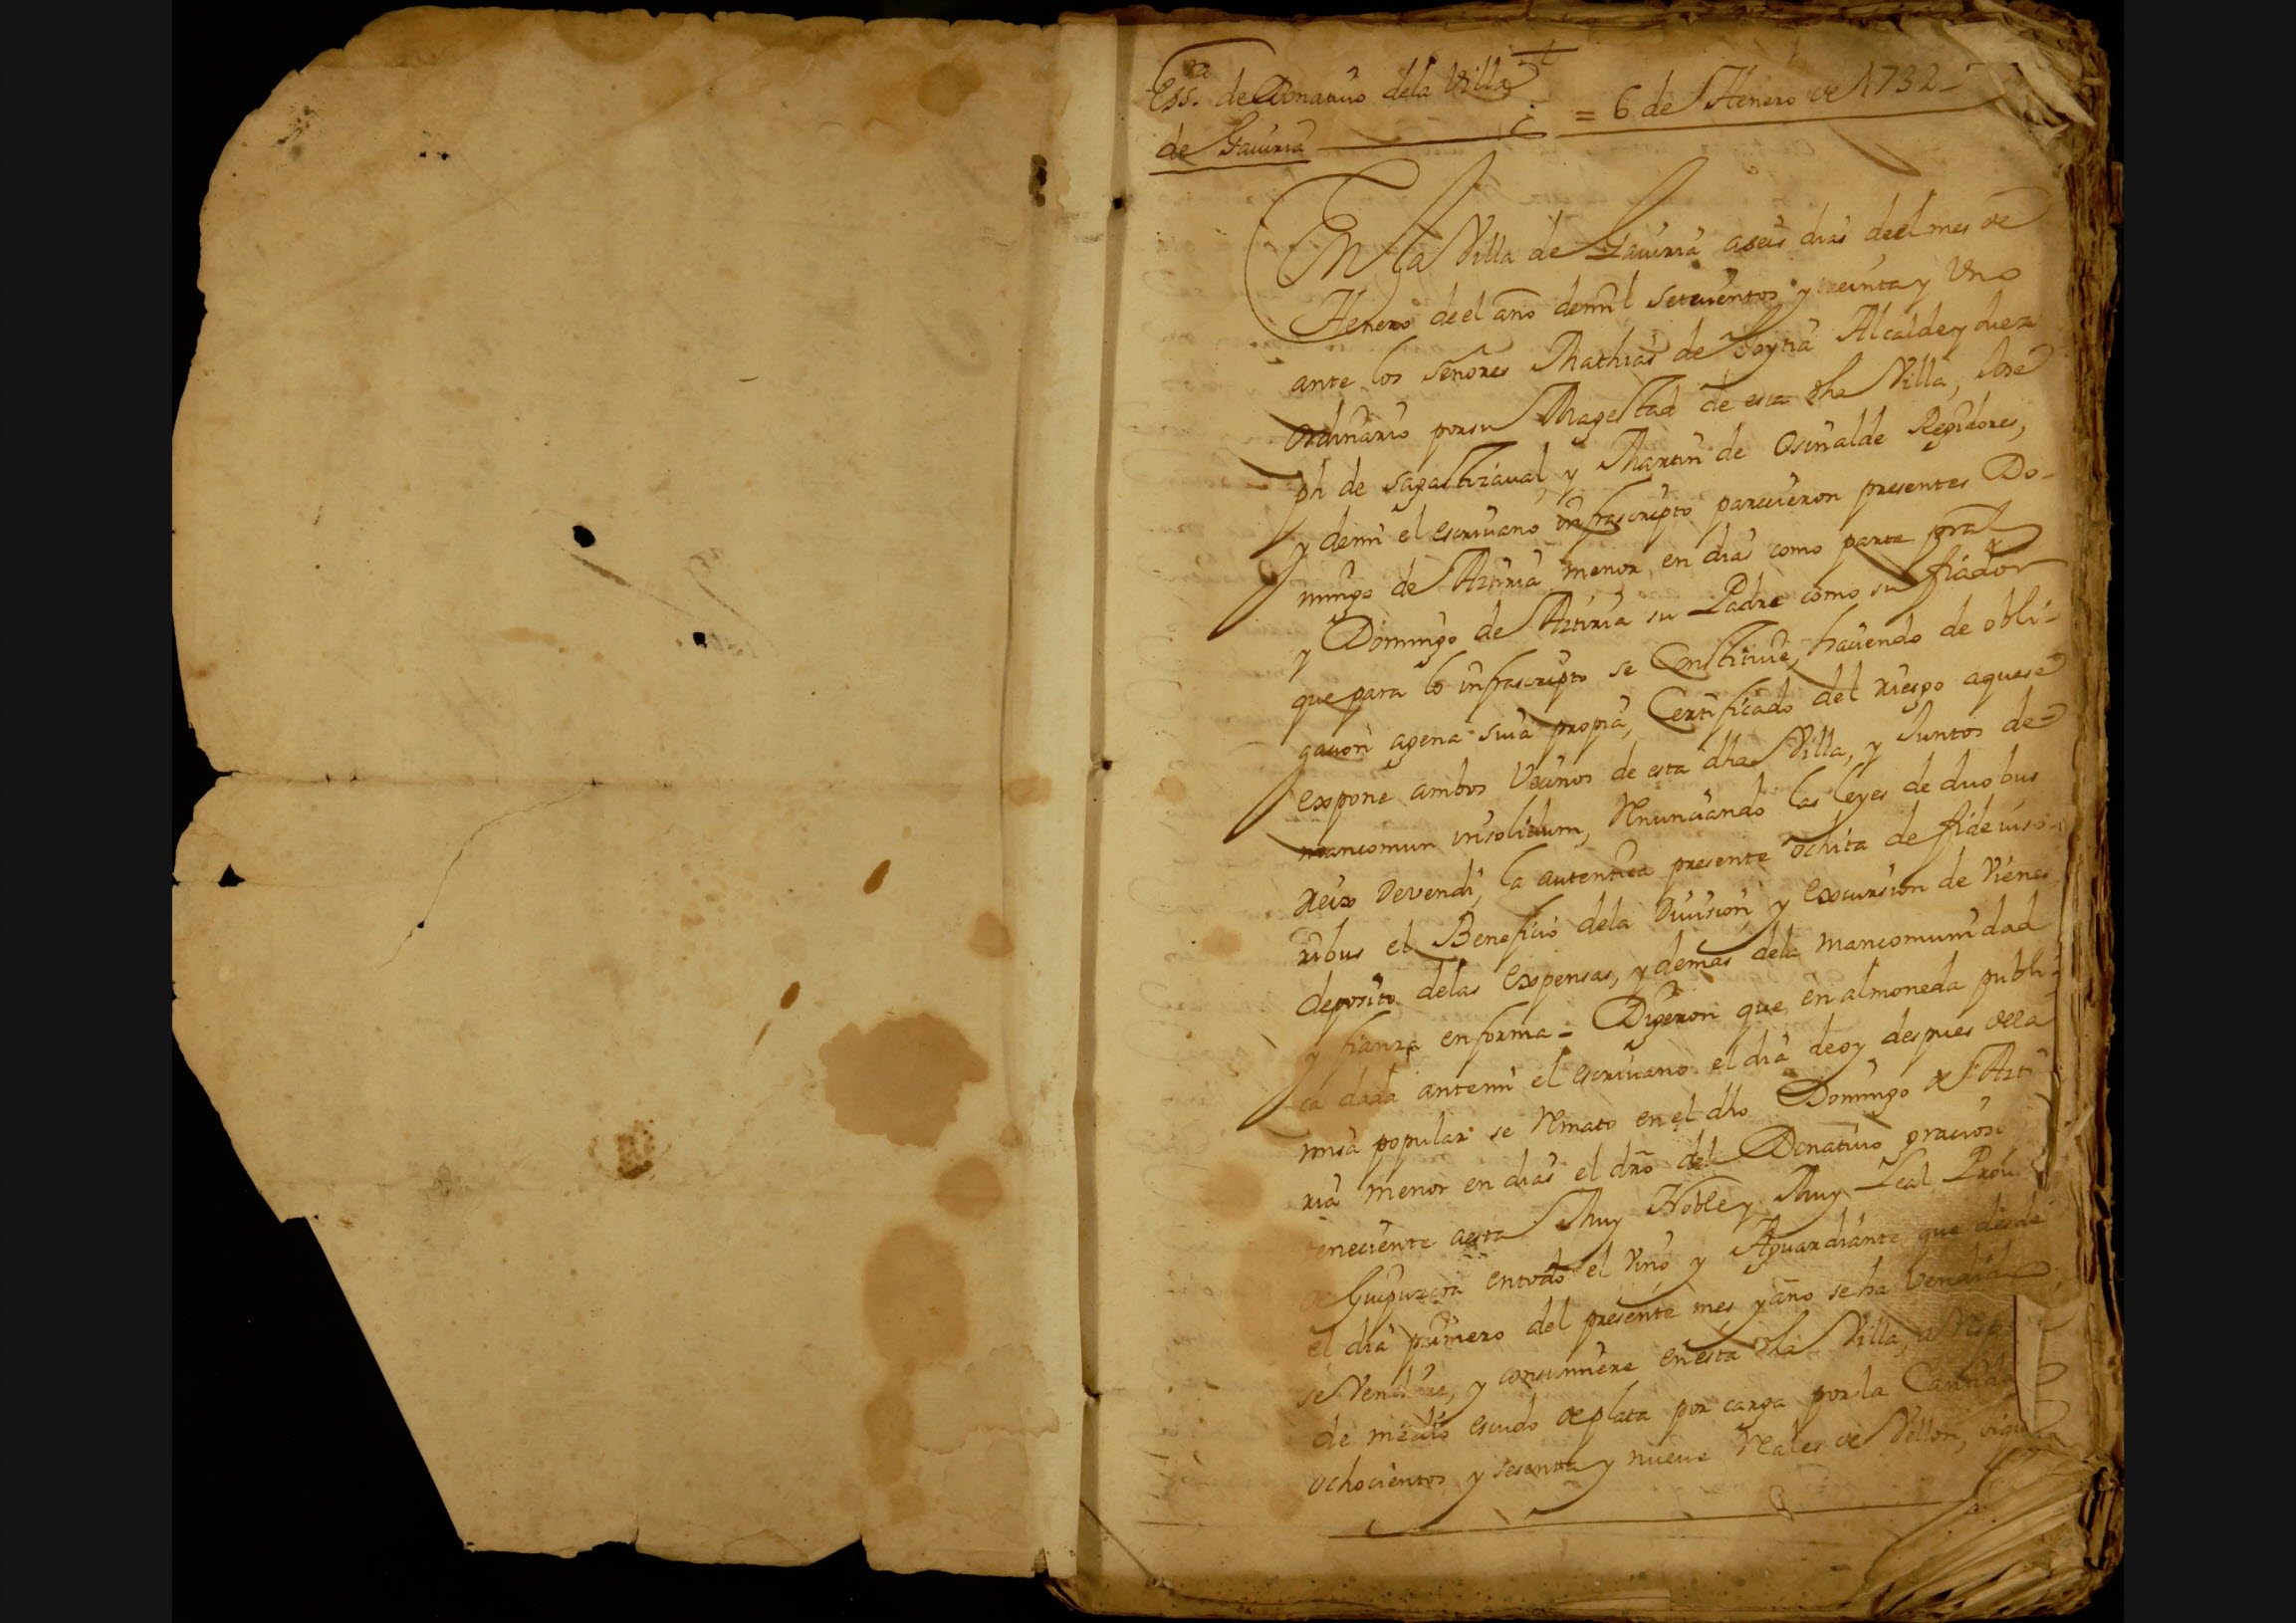 Ess.ra de Donativo dela Villa
de Gaviria = 6 de Henero de 1732
En la Villa de Gaviria aseis dias deel mes de
Henero deel año demil setecientos y treinta y Uno
ante los señores Mathias de Alcalde y Juez
ordinario porsu Magestad de esta dha Villa, Jose
ph de sagastizaval, y Martin de Osinalde Regidores,
y demi el escrivano infrascripto parecieron presentes Do-
mingo de Aztiria menor en dias como parte pral
y Domingo de Aztiria su Padre como su fiador
que para lo infrascripto se Constituie, haciendo de obli-
gacion agena suia propia, Certificado del riesgo aquese
expone ambos Vecinos de esta dha Villa, y Juntos de
mancomun insolidum, Renunciando las leyes de duobus
Reix Devendi, la autentica presente ochita de fideiuso-
ribus el Beneficio dela Division y excursion de Vienes
deposito delas expensas, y demas dela mancomunidad
y fianza enforma = Digeron que en almoneda publi-
ca dada antemi el escrivano el dia deoy despues dela
misa popular se Remato en el dho Domingo de Azti
ria menor en dias el dro del Donativo gracioso
teneciente aesta Muy Noble y Muy Leal Prov
de Guipuzcoa entodo el Vino y Aguardiante que desde
el dia primero del presente mes y año se ha Vendid
se Vendiere, y consumiere enesta dha Villa, a
de medio escudo de plata por carga por la Cantida
ochocientos y sesenta y nueve Reales de Vellon,